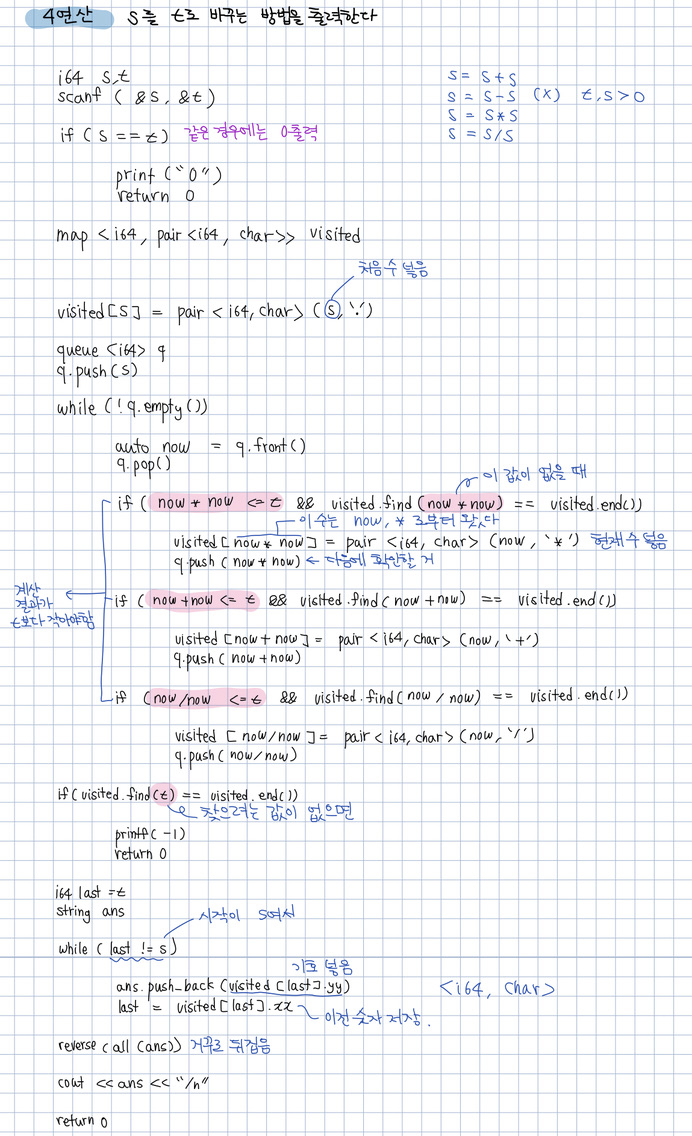 4연산 s를 t로 바꾸는 방법을 출력한다
i64 s,t
scanf ( &s, &t )
s = s+s
s = s-s (x) t,s>0
s = s*s
s = s/s
if ( s == t ) 같은 경우에는 0출력
print ("0")
return 0
map <i64, pair <i64, char>> visited
처음 수 넣음
visited[s] = pair < i64, char> (s, '.')
queue <i64> q
q.push(s)
while (!q.empty())
auto now = q.front()
q.pop()
이 값이 없을 때
if ( now * now <= t && visited.find (now * now) == visited.end())
이 수는 now, * 로부터 왔다
visited [now * now] = pair <i64, char> (now, '*') 현재 수 넣음
q.push (now * now) ← 다음에 확인할 거
계산
결과가
t보다 작아야함
if ( now+now <= t && visited.find(now+now) == visited.end())
visited [now+now] = pair <i64, char> (now, '+')
q.push (now+now)
if (now/now <= t && visited.find(now / now) == visited.end())
visited [now/now] = pair < i64, char> (now, '/')
q.push(now/now)
if(visited.find(t) == visited.end())
찾으려는 값이 없으면
printf(-1)
return 0
i64 last = t
string ans
시작이 s여서
while (last != s)
기호 넣음
ans.push_back (visited [last].yy) <i64, char>
last = visited [last].xx
이전 숫자 저장.
reverse (all (ans)) 거꾸로 뒤집음
cout << ans << "/n"
return 0